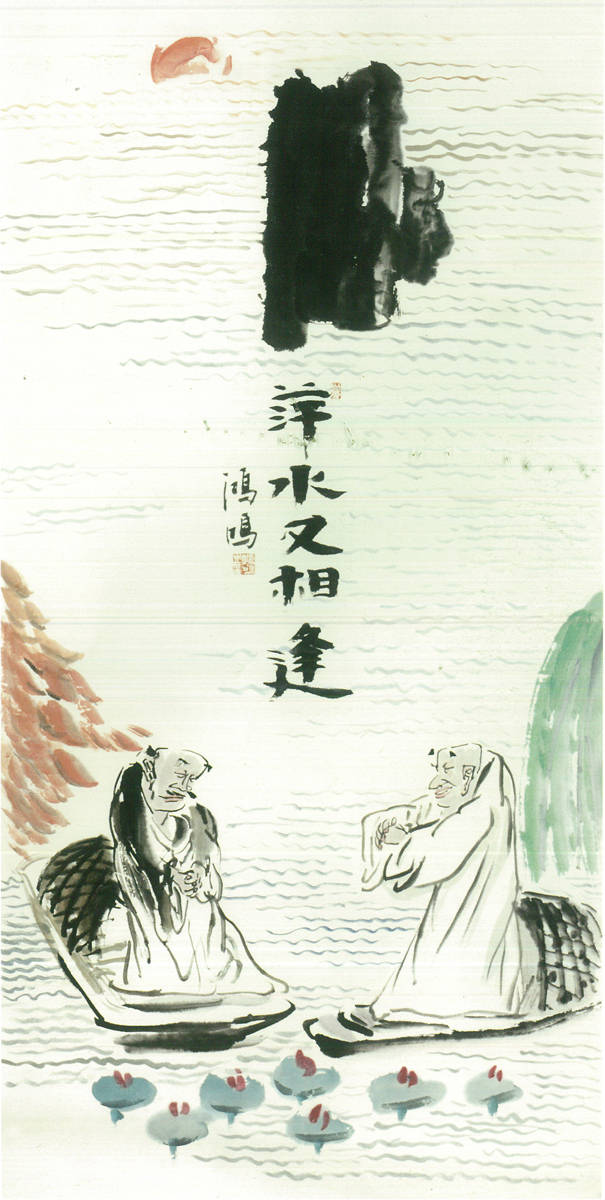 萍水又相逢
鴻鳴